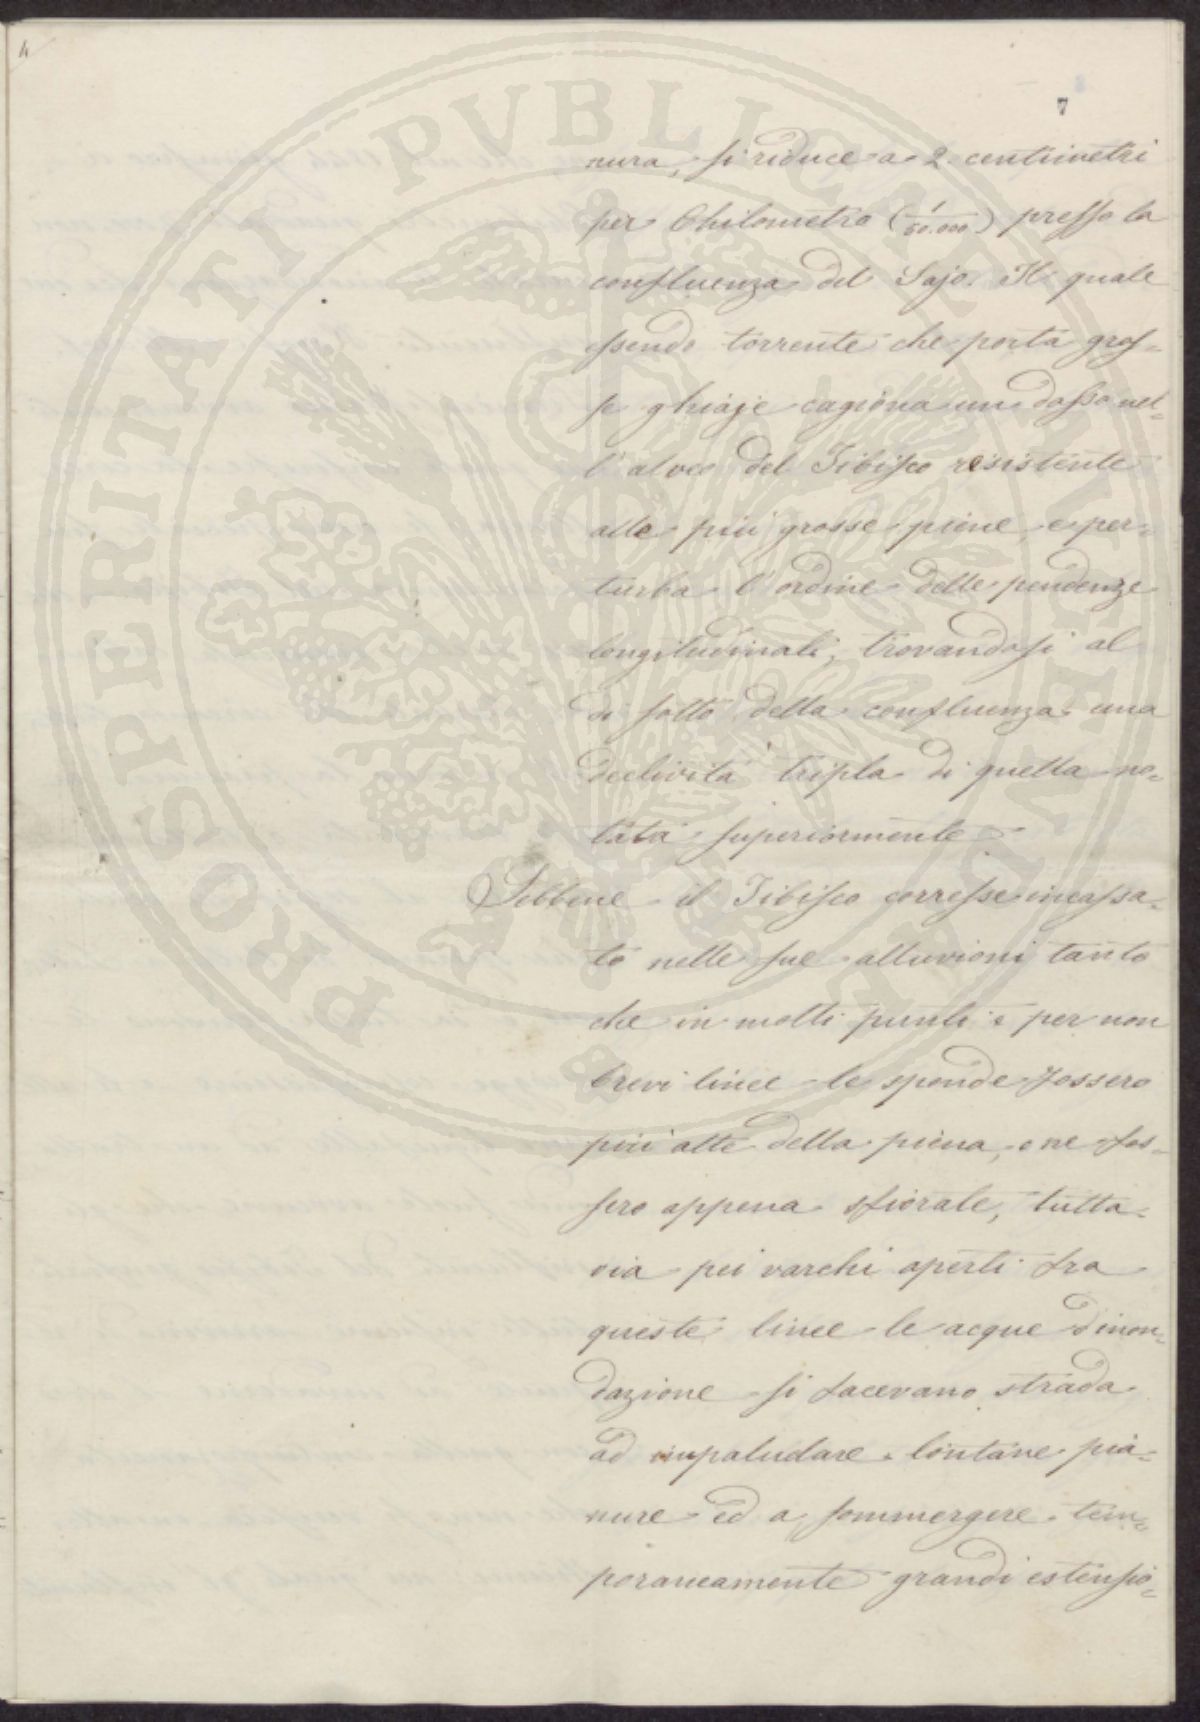 4
7
nura, si riduce a 2 centimetri
per Chilometro (1/50.000) presso la
confluenza del Sajo. Il quale
essendo torrente che porta gros=
se ghiaje cagiona un dosso nel=
l'alveo del Tibisco resistente
alle più grosse piene e per=
turba l'ordine delle pendenze
longitudinali, trovandosi al
di sotto della confluenza una
declività tripla di quella no=
tata superiormente
Sebbene il Tibisco corresse incassa=
to nelle sue alluvioni tanto
che in molti punti e per non
brevi linee le sponde fossero
più alte della piena, o ne fos=
sero appena sfiorate, tutta=
via pei varchi aperti fra
queste linee le acque d'inon=
dazione si facevano strada
ad impaludare lontane pia=
nure ed a sommergere tem=
poraneamente grandi estensio=
PROSPERITATI PVBLICAE